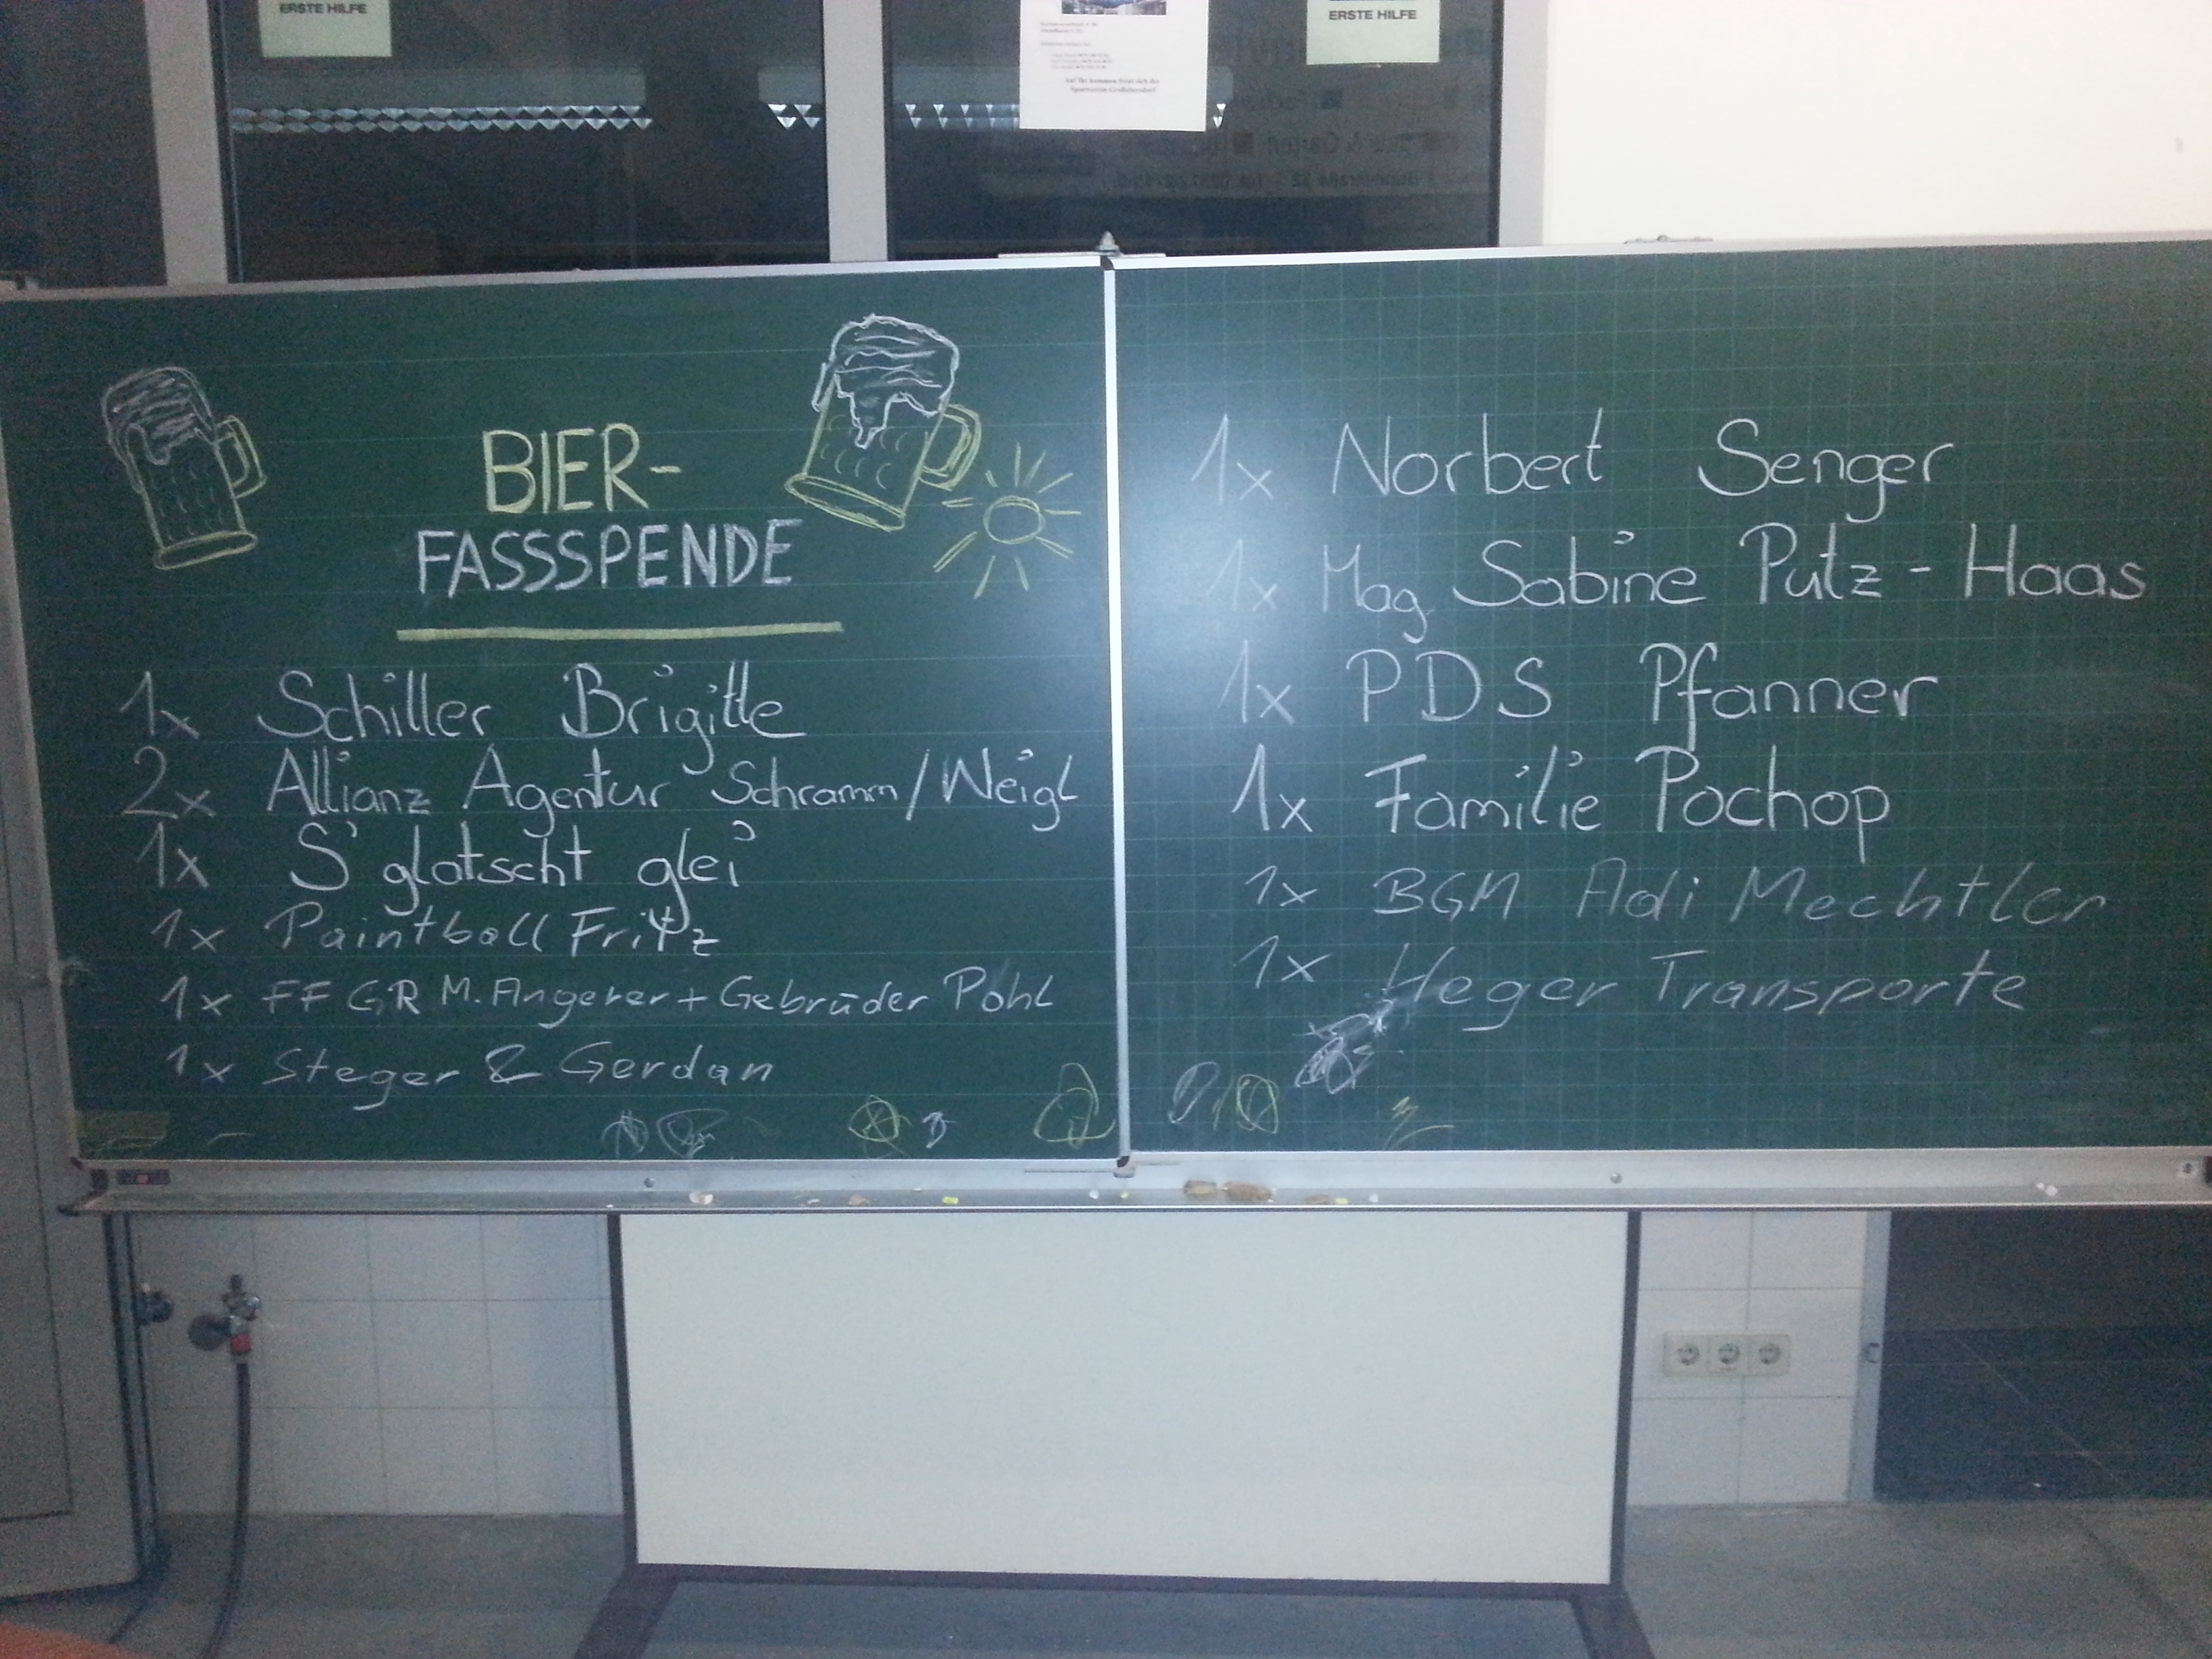 ERSTE HILFE
ERSTE HILFE
Auf Ihr kommen freut sich der
Sportverein Großebersdorf
BIER-
FASSSPENDE
1x Schiller Brigitte
2x Allianz Agentur Schramm/Weigl
1x S' glatscht glei
1x Paintball Fritz
1x FF GR M. Angerer + Gebrüder Pohl
1x Steger & Gerdan
1x Norbert Senger
1x Mag Sabine Putz-Haas
1x PDS Pfanner
1x Familie Pochop
1x BGM Adi Mechtler
1x Heger Transporte